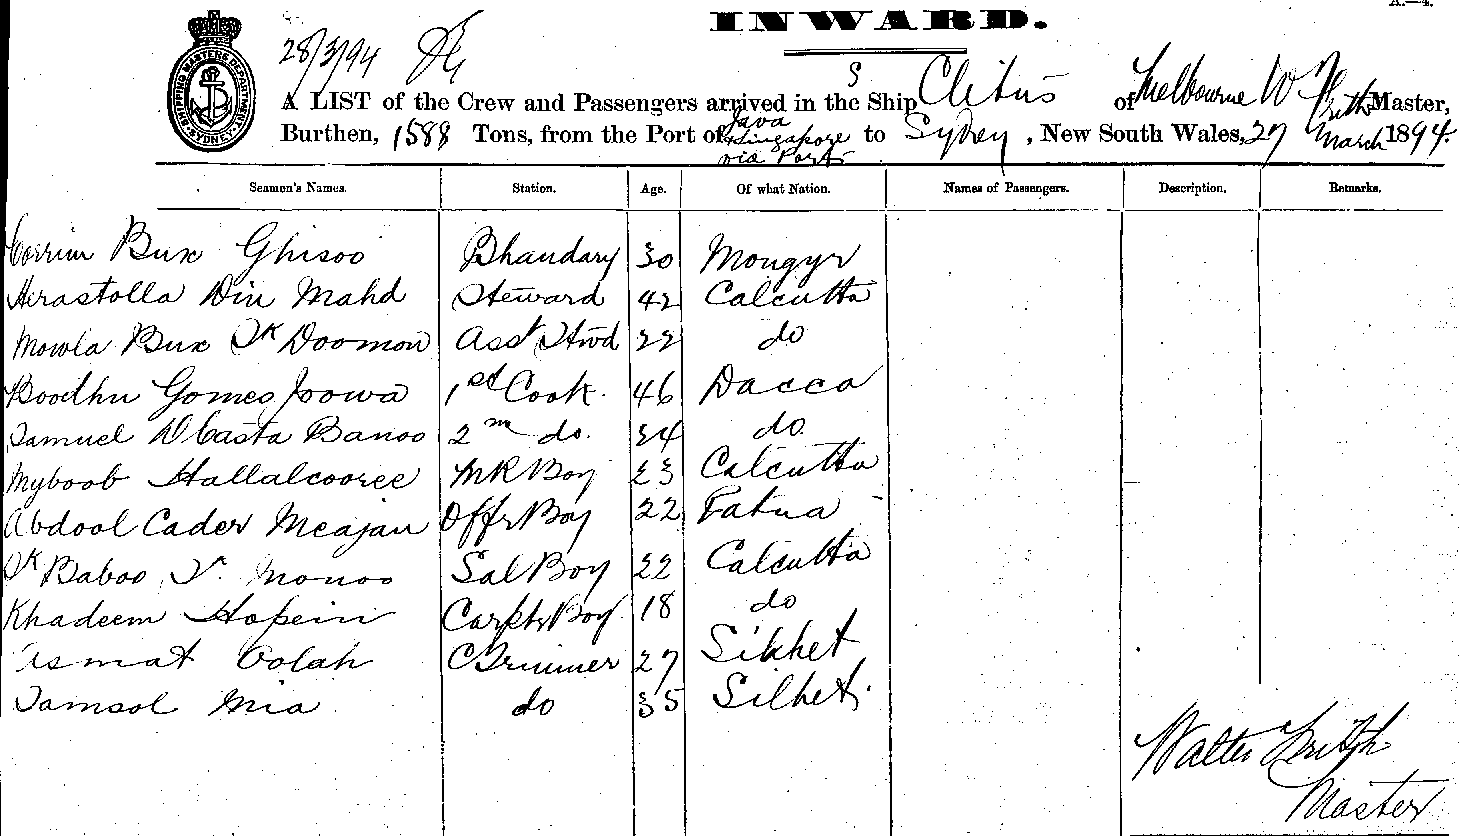 A.—4.
INWARD.
28/3/94
SHIPPING MASTERS DEPARTMENT N.S.W.
A LIST of the Crew and Passengers arrived in the S Ship Clitus of Melbourne W Frith Master,
Burthen, 1588 Tons, from the Port of Java Singapore via Ports to Sydney, New South Wales, 27 March 1894.
Seamen's Names. Station. Age. Of what Nation. Names of Passengers. Description. Remarks.
Corrim Bux Ghisoo Bhandary 30 Mongyr
Herastolla Din Mahd Steward 42 Calcutta
Mowla Bux Sk Doomon Asst Stwd 22 do
Boodhu Gomes Joowa 1st Cook. 46 Dacca
Samuel DCasta Banoo 2nd do. 34 do
Myboob Hallalcooree MR Boy 23 Calcutta
Abdool Cader Meajan Offr Boy 22 Patna
Sk Baboo S. Monoo Sal Boy 22 Calcutta
Khadeem Hosein Carptr Boy 18 do
Asmat Oolah C Trimmer 27 Silhet
Samsol Mia do 35 Silhet.
Walter Frith
Master